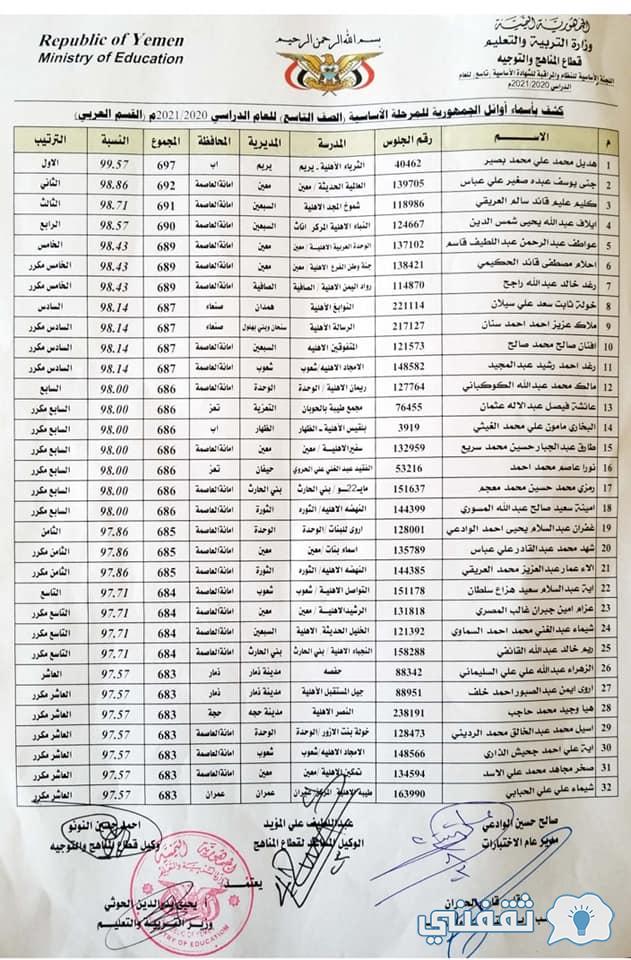 الجمهورية اليمنية
وزارة التربية والتعليم
قطاع المناهج والتوجيه
اللجنة الأساسية للنظام والمراقبة للشهادة الأساسية (تاسع) للعام
الدراسي 2021/2020م
بسم الله الرحمن الرحيم
Republic of Yemen
Ministry of Education
كشف بأسماء أوائل الجمهورية للمرحلة الأساسية (الصف التاسع) للعام الدراسي 2021/2020م (القسم العربي)
م الاســـم رقم الجلوس المدرسة المديرية المحافظة المجموع النسبة الترتيب
1 هديل محمد علي محمد بصير 40462 الثرياء الأهلية - يريم يريم اب 697 99.57 الاول
2 جنى يوسف عبده صغير علي عباس 139705 العالمية الحديثة / معين معين امانة العاصمة 692 98.86 الثاني
3 كليم عليم قائد سالم العريقي 118986 شموخ المجد الاهلية السبعين امانة العاصمة 691 98.71 الثالث
4 ايلاف عبدالله يحيى شمس الدين 124667 النباء الاهلية المركز اناث السبعين امانة العاصمة 690 98.57 الرابع
5 عواطف عبدالرحمن عبداللطيف قاسم 137102 الوحدة العربية الاهلية / معين معين امانة العاصمة 689 98.43 الخامس
6 احلام مصطفى قائد الحكيمي 138421 جنة وطن الفرع الاهلية / معين معين امانة العاصمة 689 98.43 الخامس مكرر
7 رغد خالد عبدالله راجح 114870 رواد اليمن الاهلية / الصافية الصافية امانة العاصمة 689 98.43 الخامس مكرر
8 خولة ثابت سعد علي سيلان 221114 النوابغ الأهلية همدان صنعاء 687 98.14 السادس
9 ملاك عزيز احمد احمد سنان 217127 الرسالة الأهلية سنحان وبني بهلول صنعاء 687 98.14 السادس مكرر
10 افنان صالح محمد صالح 121573 المتفوقين الاهليه السبعين امانة العاصمة 687 98.14 السادس مكرر
11 رغد احمد رشيد عبدالمجيد 148582 الامجاد الاهليه/ شعوب شعوب امانة العاصمة 687 98.14 السادس مكرر
12 مالك محمد عبدالله الكوكباني 127764 ريمان الاهلية / الوحدة الوحدة امانة العاصمة 686 98.00 السابع
13 عائشة فيصل عبدالاله عثمان 76455 مجمع طيبة بالحوبان التعزية تعز 686 98.00 السابع مكرر
14 البخاري مامون علي محمد الغيثي 3919 بلقيس الأهلية - الظهار الظهار اب 686 98.00 السابع مكرر
15 طارق عبدالجبار حسين محمد سريع 132959 سفير الاهليـة / معين معين امانة العاصمة 686 98.00 السابع مكرر
16 نورا عاصم محمد احمد 53216 الفقيد عبدالغني علي الحروي حيفان تعز 686 98.00 السابع مكرر
17 رمزي محمد حسين محمد معجم 151637 22مايــو/ بني الحارث بني الحارث امانة العاصمة 686 98.00 السابع مكرر
18 امينة سعيد صالح عبدالله المسوري 144399 النهضه الاهليه / الثوره الثورة امانة العاصمة 686 98.00 السابع مكرر
19 غفران عبدالسلام يحيى احمد الوادعي 128001 اروى للبنات /الوحدة الوحدة امانة العاصمة 685 97.86 الثامن
20 شهد محمد عبدالقادر علي عباس 135789 اسماء بنات / معين معين امانة العاصمة 685 97.86 الثامن مكرر
21 الاء عمار عبدالعزيز محمد العريقي 144385 النهضه الاهليه / الثوره الثورة امانة العاصمة 685 97.86 الثامن مكرر
22 اية عبدالسلام سعيد هزاع سلطان 151178 التواصل الاهليـة / شعوب شعوب امانة العاصمة 684 97.71 التاسع
23 عزام امين جبران غالب المصري 131818 الرشيد الاهلية / معين معين امانة العاصمة 684 97.71 التاسع مكرر
24 شيماء عبدالغني محمد احمد السماوي 121392 الخليل الحديثة الاهلية السبعين امانة العاصمة 684 97.71 التاسع مكرر
25 ريم خالد عبدالله القانفي 158288 النجباء الاهلية / بني الحارث بني الحارث امانة العاصمة 684 97.71 التاسع مكرر
26 الزهراء عبدالله علي علي السليماني 88342 حفصه مدينة ذمار ذمار 683 97.57 العاشر
27 اروى ايمن عبدالصبور احمد خلف 88951 جيل المستقبل الأهلية مدينة ذمار ذمار 683 97.57 العاشر مكرر
28 هيا وجيد محمد حاجب 238191 النصر الاهلية مدينة حجه حجة 683 97.57 العاشر مكرر
29 اسيل محمد عبدالخالق محمد الرديني 128473 خولة بنت الازور/ الوحدة الوحدة امانة العاصمة 683 97.57 العاشر مكرر
30 اية علي احمد جحيش الذاري 148566 الامجاد الاهليه/ شعوب شعوب امانة العاصمة 683 97.57 العاشر مكرر
31 صخر مجاهد محمد علي الاسد 134594 تمكين الاهلية / معين معين امانة العاصمة 683 97.57 العاشر مكرر
32 شيماء علي علي الحبابي 163990 طيبة الاهلية المركز عمران عمران عمران 683 97.57 العاشر مكرر
صالح حسين الوادعي
مدير عام الاختبارات
عبداللطيف علي المؤيد
الوكيل المساعد لقطاع المناهج
احمد حسين النونو
وكيل قطاع المناهج والتوجيه
يعتمــد
أ يحيى بدرالدين الحوثي
وزير التربية والتعليم
MINISTRY OF EDUCATION
ثقفني